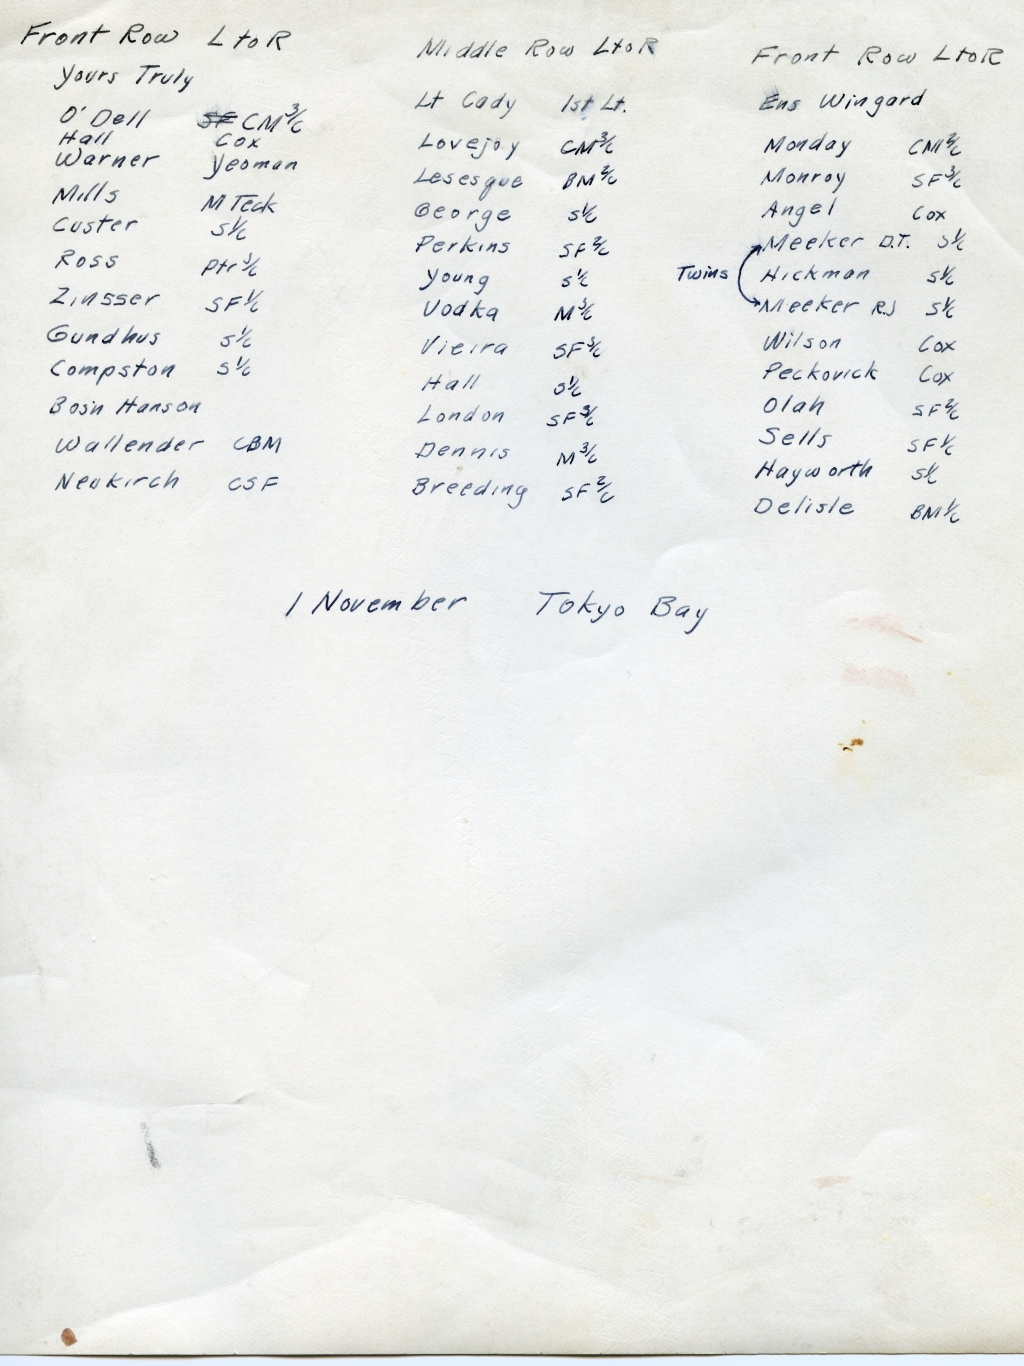 Front Row L to R
Yours Truly
O'Dell SF CM 3/c
Hall Cox
Warner Yeoman
Mills M Teck
Custer S1/c
Ross Ptr 3/c
Zinsser SF 1/c
Gundhus S1/c
Compston S1/c
Bosn Hanson
Wallender CBM
Neukirch CSF
Middle Row L to R
Lt Cady 1st Lt.
Lovejoy CM 3/c
Lesesque BM 2/c
George S1/c
Perkins SF 2/c
Young S1/c
Vodka M 3/c
Vieira SF 3/c
Hall S1/c
London SF 3/c
Dennis M 3/c
Breeding SF 2/c
Front Row L to R
Ens Wingard
Monday CM 2/c
Monroy SF 3/c
Angel Cox
Meeker D.T. S1/c
Twins Hickman S1/c
Meeker R.J S1/c
Wilson Cox
Peckovick Cox
Olah SF 2/c
Sells SF 1/c
Hayworth S1/c
Delisle BM 1/c
1 November Tokyo Bay